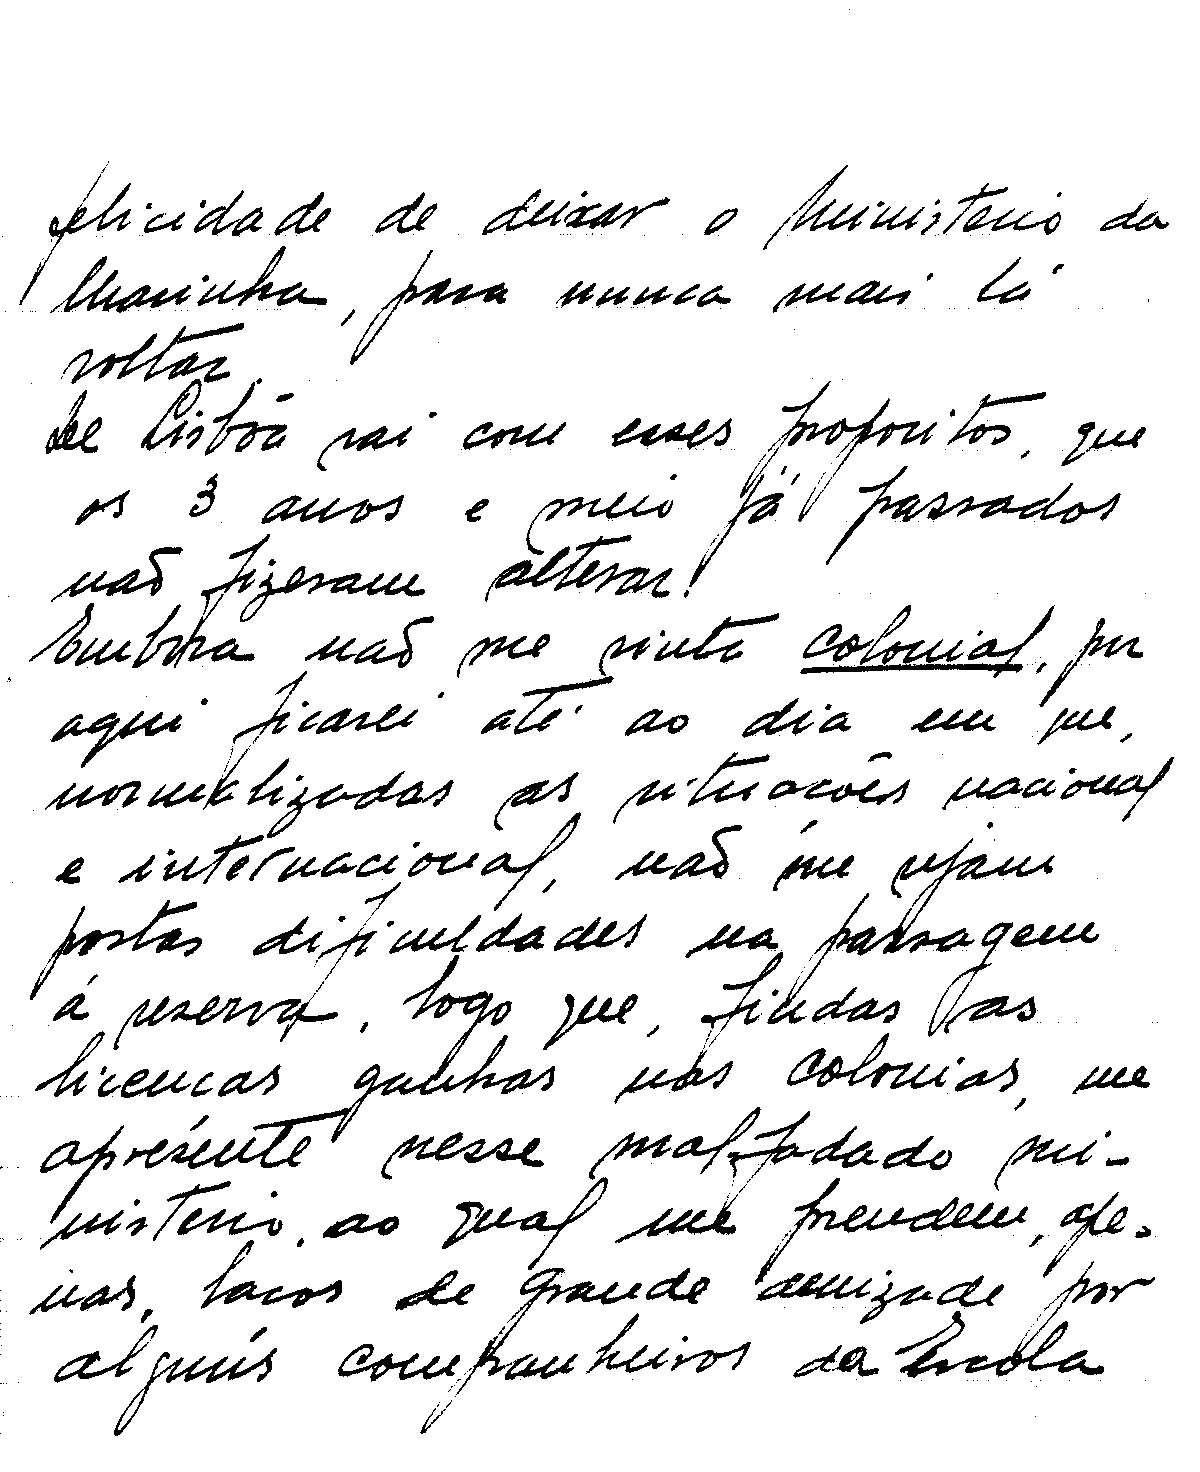 felicidade de deixar o Ministerio da
Marinha, para nunca mais lá
voltar.
De Lisbôa saí com esses propositos, que
os 3 anos e meio já passados
não fizeram alterar!
Embora não me sinta colonial, por
aqui ficarei até ao dia em que,
normalizadas as situações nacional
e internacional, não me sejam
postas dificuldades na passagem
á reserva, logo que, findas as
licencas ganhas nas colonias, me
apresente nesse mal-fadado mi-
nisterio, ao qual me prendem, ape-
nas, lacos de grande amizade por
alguns companheiros da Escola